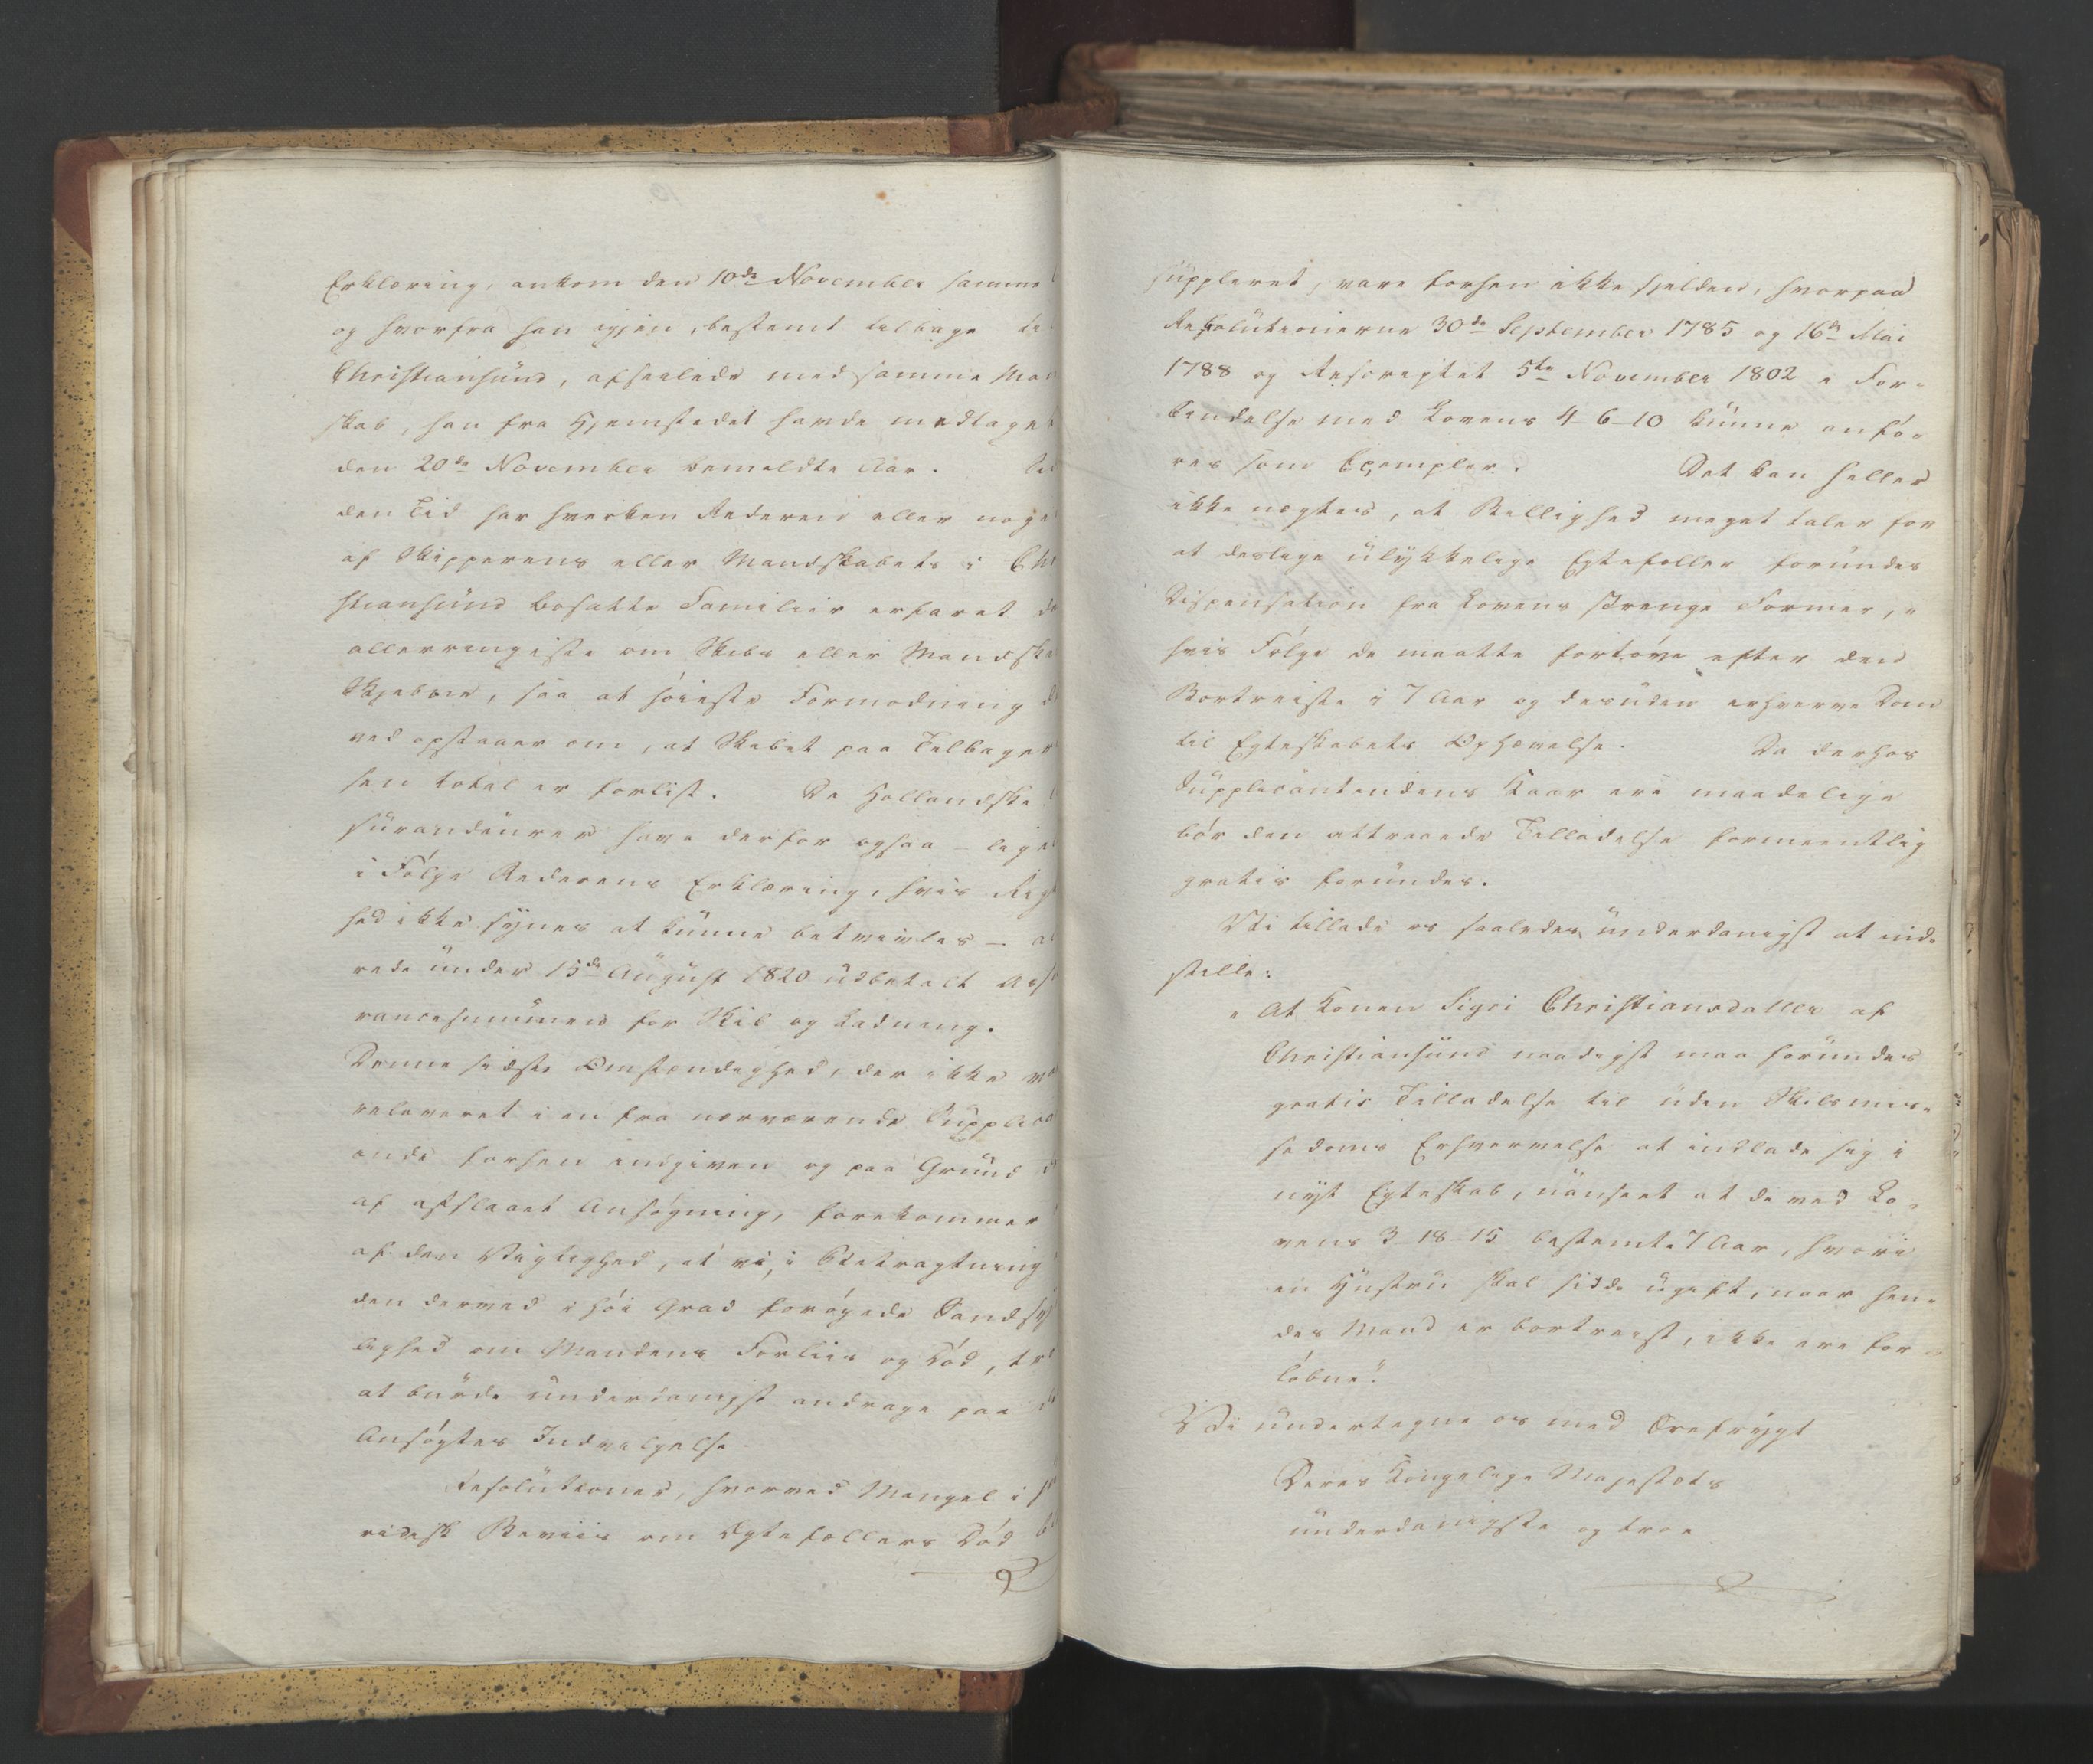 Erklæring, ankom den 10de November samme
og hvorfra han igjen, bestemt tilbage ti
Christiansund, afseilede med samme Man
skab, han fra Hjemstedet havde medtaget
den 20de November bemeldte Aar.
den Tid har hverken Rederen eller noge
af Skipperens eller Mandskabets i Chri
stiansund bosatte Familier erfaret de
allerringeste om Skibs eller Mandska
Skjebne, saa at høieste Formodning d
ved opstaaer om, at Skibet paa Tilbager
sen total er forlist. De Hollandske
surandeurer have derfor ogsaa – lige
i Følge Rederens Erklæring, hvis Rig
hed ikke synes at kunne betvivles – al
rede under 15de August 1820 udbetalt Ass
rancesummen for Skib og Ladning.
Denne sidste Omstændighed, der ikke va
releveret i en fra nærværende Supplica
ande forhen indgiven og paa Grund
af afslaaet Ansøgning, forekommer
af den Vigtighed, at vi, i Betragtning
den derved i høi Grad forøgede Sandsy
lighed om Mandens Forliis og Død, tro
at burde underdanigst andrage paa
Ansøgtes Indvilgelse.
Resolutioner, hvorved Mangel i
ridisk Beviis om Ægtefællers Død
suppleret, vare forhen ikke sjelden, hvorpaa
Resolutionerne 30te September 1785 og 16de Mai
1788 og Rescriptet 5te November 1802 i For-
bindelse med Lovens 4-6-10 kunne anfø-
res som Exempler. Det kan heller
ikke nægtes, at Billighed meget taler for
at deslige ulykkelige Egtefæller forundes
Dispensation fra Lovens strenge Former, i
hvis Følge de maatte fortøve efter den
Bortreiste i 7 Aar og desuden erhverve Dom
til Egteskabets Ophævelse. Da derhos
Supplicantindens Kaar ere maadelige
bør den attraaede Tilladelse formeentlig
gratis forundes.
Vi tillade os saaledes underdanigst at ind-
stille:
„At Konen Sigri Christiansdatter af
Christiansund naadigst maa forundes
gratis Tilladelse til uden Skilsmis-
sedoms Erhvervelse at indlade sig i
nyt Egteskab, uanseet at de ved Lo-
vens 3-18-15 bestemte 7 Aar, hvori
en Hustru skal sidde ugift, naar hen-
des Mand er bortreist, ikke ere for-
løbne."
Vi undertegne os med Ærefrygt
Deres Kongelige Majestæts
underdanigste og troe